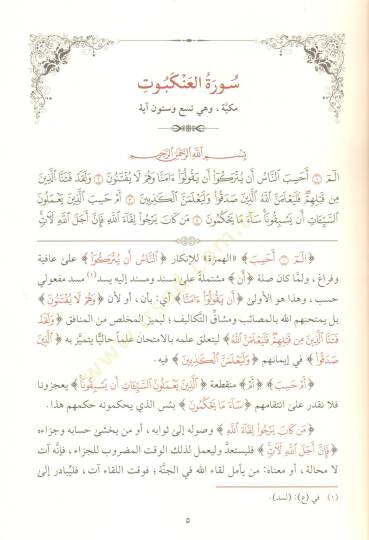 سُورَةُ العَنْكَبُوتِ
مكيَّة ، وهي تسع وستون آية
بِسْمِ اللَّهِ الرَّحْمَٰنِ الرَّحِيمِ
الٓمٓ ﴿١﴾ أَحَسِبَ النَّاسُ أَن يُتْرَكُوٓا۟ أَن يَقُولُوٓا۟ ءَامَنَّا وَهُمْ لَا يُفْتَنُونَ ﴿٢﴾ وَلَقَدْ فَتَنَّا الَّذِينَ
مِن قَبْلِهِمْ فَلَيَعْلَمَنَّ اللَّهُ الَّذِينَ صَدَقُوا۟ وَلَيَعْلَمَنَّ الْكَاذِبِينَ ﴿٣﴾ أَمْ حَسِبَ الَّذِينَ يَعْمَلُونَ
السَّيِّـَٔاتِ أَن يَسْبِقُونَا سَآءَ مَا يَحْكُمُونَ ﴿٤﴾ مَن كَانَ يَرْجُوا۟ لِقَآءَ اللَّهِ فَإِنَّ أَجَلَ اللَّهِ لَـَٔاتٍ
﴿ الٓمٓ ﴿١﴾ أَحَسِبَ ﴾ «الهمزة» للإنكار ﴿ النَّاسُ أَن يُتْرَكُوٓا۟ ﴾ على عافية
وفراغ، ولمَّا كان صلة ﴿ أَن ﴾ مشتملة على مسند ومسند إليه يسد(١) مسد مفعولي
حسب، وهذا هو الأولى ﴿ أَن يَقُولُوٓا۟ ءَامَنَّا ﴾ أي: بأن، أو لأن ﴿ وَهُمْ لَا يُفْتَنُونَ ﴾
بل يمتحنهم الله بالمصائب ومشاقِّ التكاليف؛ ليميز المخلص من المنافق ﴿ وَلَقَدْ
فَتَنَّا الَّذِينَ مِن قَبْلِهِمْ فَلَيَعْلَمَنَّ اللَّهُ ﴾ ليتعلق علمه بالامتحان علماً حاليًّا يتميَّز به ﴿ الَّذِينَ
صَدَقُوا۟ ﴾ في إيمانهم ﴿ وَلَيَعْلَمَنَّ الْكَاذِبِينَ ﴾ فيه.
﴿ أَمْ حَسِبَ ﴾ ﴿ أَمْ ﴾ منقطعة ﴿ الَّذِينَ يَعْمَلُونَ السَّيِّـَٔاتِ أَن يَسْبِقُونَا ﴾ يعجزونا
فلا نقدر على انتقامهم ﴿ سَآءَ مَا يَحْكُمُونَ ﴾ بئس الذي يحكمونه حكمهم هذا.
﴿ مَن كَانَ يَرْجُوا۟ لِقَآءَ اللَّهِ ﴾ وصوله إلى ثوابه، أو من يخشى حسابه وجزاءه
﴿ فَإِنَّ أَجَلَ اللَّهِ لَـَٔاتٍ ﴾ فليستعدَّ وليعمل لذلك الوقت المضروب للجزاء، فإنَّه آت
لا محالة، أو معناه: من يأمل لقاء الله في الجنَّة؛ فوقت اللقاء آت، فليبادر إلى
(١) في (ع): (لسد).
٥